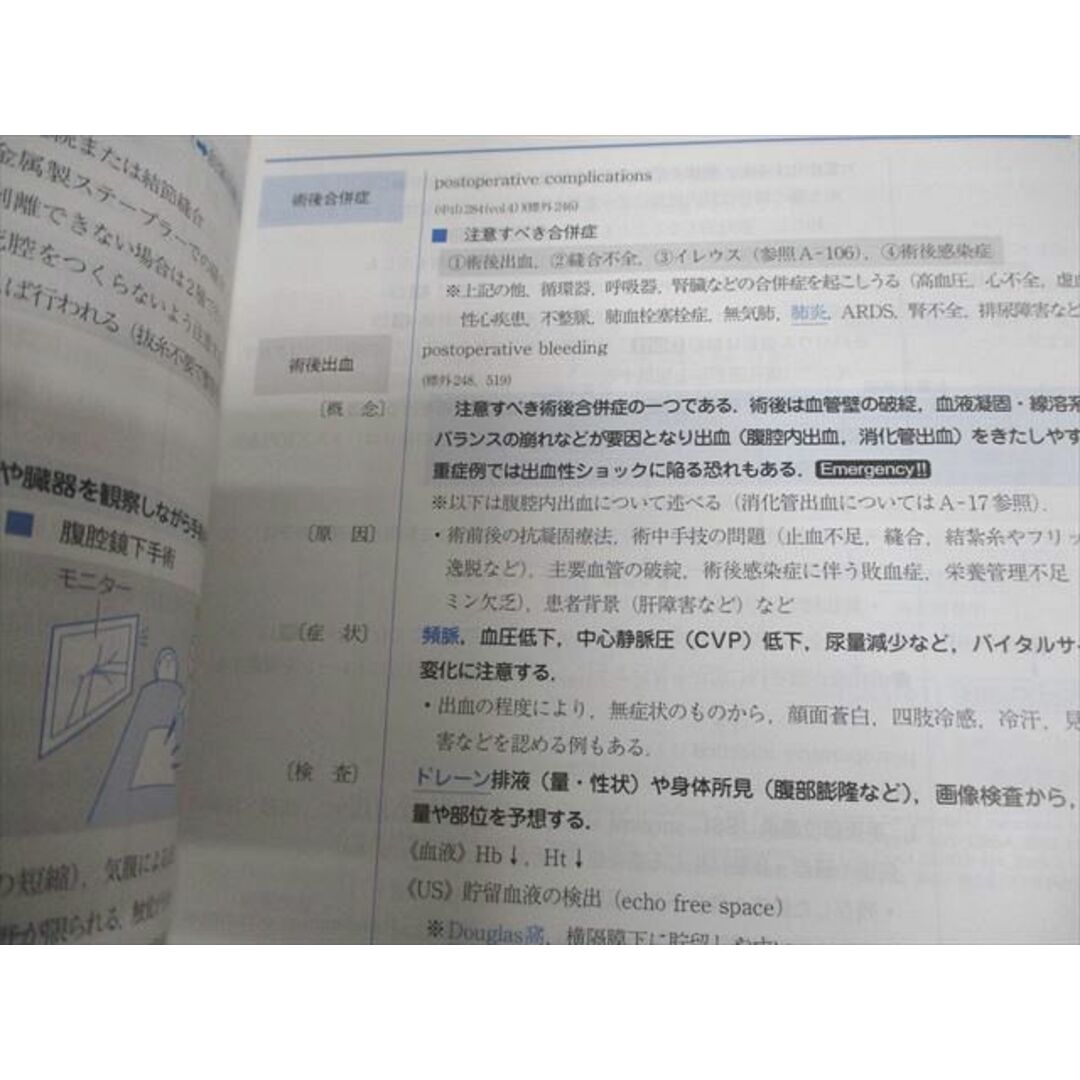 または結節縫合
金属製ステープラーでの
剥離できない場合は2層で
死腔をつくらないよう注意
ば行われる（抜糸不要で
や臓器を観察しながら手術
■ 腹腔鏡下手術
モニター
の短縮），気腹による
が限られる．
術後合併症
postoperative complications
■ 注意すべき合併症
①術後出血，②縫合不全，③イレウス（参照A-106），④術後感染症
※上記の他，循環器，呼吸器，腎臓などの合併症を起こしうる（高血圧，心不全，虚血
性心疾患，不整脈，肺血栓塞栓症，無気肺，肺炎，ARDS，腎不全，排尿障害など
術後出血
postoperative bleeding
(標外248，519)
〔概 念〕
注意すべき術後合併症の一つである．術後は血管壁の破綻，血液凝固・線溶系
バランスの崩れなどが要因となり出血（腹腔内出血，消化管出血）をきたしやす
重症例では出血性ショックに陥る恐れもある．Emergency!!
※以下は腹腔内出血について述べる（消化管出血についてはA-17参照）．
〔原 因〕
・術前後の抗凝固療法，術中手技の問題（止血不足，縫合，結紮糸やフリッ
逸脱など），主要血管の破綻，術後感染症に伴う敗血症，栄養管理不足
ミン欠乏），患者背景（肝障害など）など
〔症 状〕
頻脈，血圧低下，中心静脈圧（CVP）低下，尿量減少など，バイタルサイ
変化に注意する．
・出血の程度により，無症状のものから，顔面蒼白，四肢冷感，冷汗，見
害などを認める例もある．
〔検 査〕
ドレーン排液（量・性状）や身体所見（腹部膨隆など），画像検査から，
量や部位を予想する．
《血液》Hb↓，Ht↓
《US》貯留血液の検出（echo free space）
※Douglas窩，横隔膜下に貯留しやすい